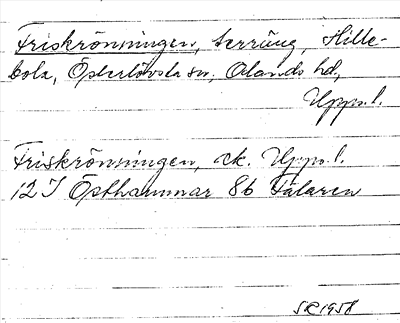 Friskrönningen, terräng, Hille-
bola, Österlövsta sn, Olands hd,
Upps. l.
Friskrönningen, ek. Upps. l.
12 I Östhammar 8b Vålaren
SR 1958